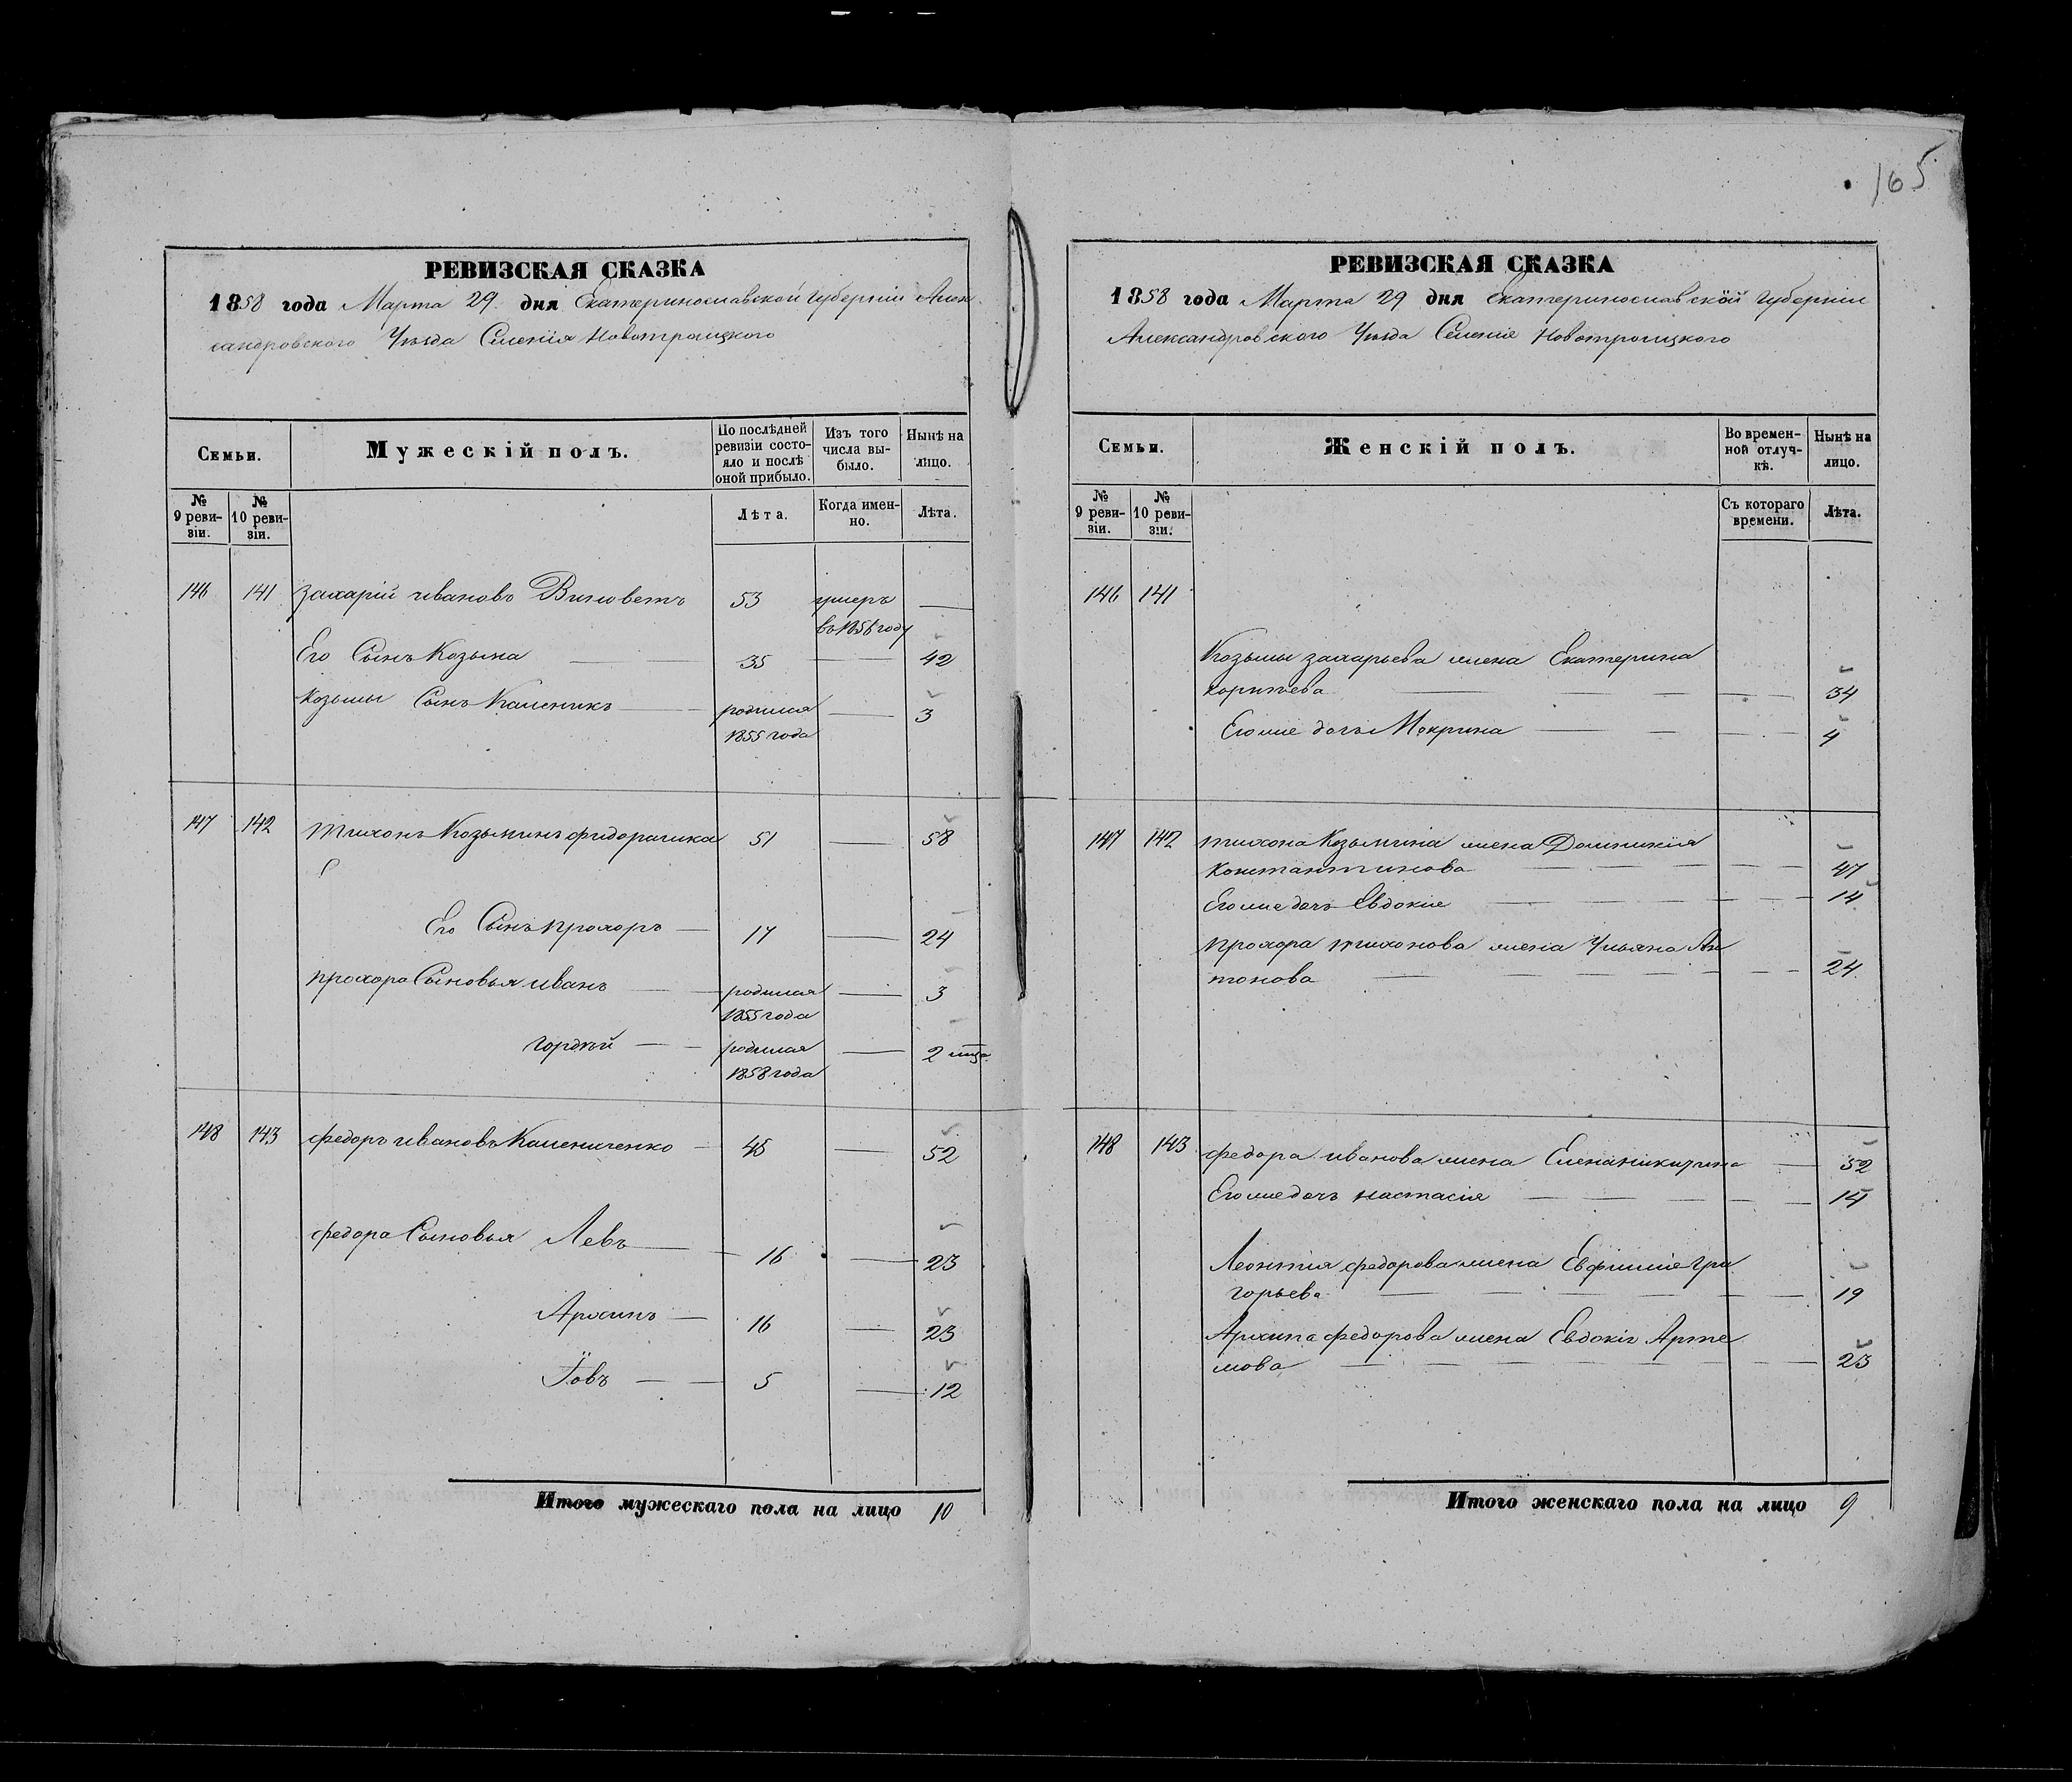 165
РЕВИЗСКАЯ СКАЗКА
1858 года Марта 29 дня Екатеринославской губерніи Алек
сандровского Уѣзда Селенія Новотроицкого
Семьи.
Мужескій полъ.
По послѣдней ревизіи состояло и послѣ оной прибыло.
Изъ того числа выбыло.
Нынѣ на лицо.
№ 9 ревизіи.
№ 10 ревизіи.
Лѣта.
Когда именно.
Лѣта.
146 141 Захарій Ивановъ 53 умеръ —
въ 1856 году
Его Сынъ Козьма — 35 — 42
Козьмы Сынъ — родился — 3
1855 года
147 142 Тихонъ Козьминъ 51 — 58
Его Сынъ Прохоръ — 17 — 24
Прохора Сыновья Иванъ — родился — 3
1855 года
Гордѣй — родился — 2 мца
1858 года
148 143 Федоръ Ивановъ Калениченко — 45 — 52
Федора Сыновья Левъ — 16 — 23
Архипъ — 16 — 23
Іовъ — 5 — 12
Итого мужескаго пола на лицо 10
РЕВИЗСКАЯ СКАЗКА
1858 года Марта 29 дня Екатеринославской Губерніи
Александровского Уѣзда Селеніе Новотроицкого
Семьи.
Женскій полъ.
Во временной отлучкѣ.
Нынѣ на лицо.
№ 9 ревизіи.
№ 10 ревизіи.
Съ котораго времени.
Лѣта.
146 141
Козьмы Захарьева жена Екатерина
— 34
Его же дочь Мокрина — 4
147 142 Тихона Козьмина жена Домникія
Константинова — 47
Его же дочь Евдокіе — 14
Прохора Тихонова жена Ульяна Ан
тонова — 24
148 143 Федора Иванова жена Елена Никитина — 52
Его же дочь Настасія — 14
Леонтія Федорова жена Евфиміе Гри
горьева — 19
Архипа Федорова жена Евдокіе Арте
мова — 23
Итого женскаго пола на лицо 9